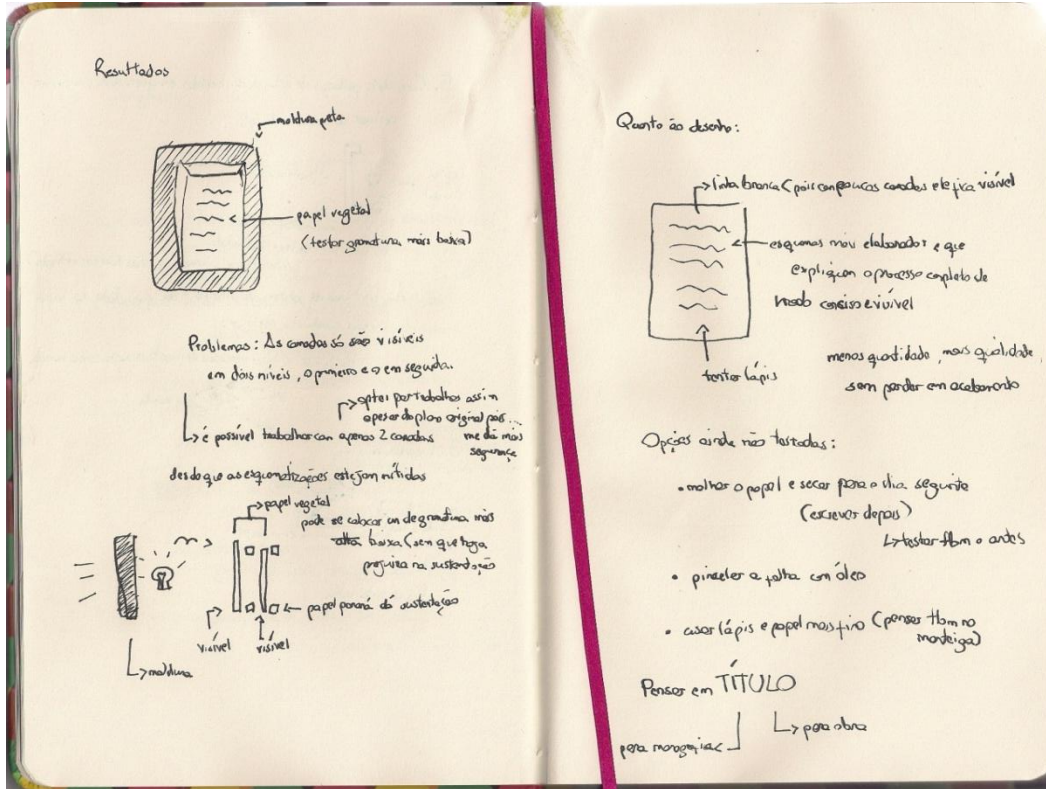 Resultados
moldura preta
papel vegetal
(testar gramatura mais baixa)
Problemas: As camadas só são visíveis
em dois níveis, o primeiro e o em seguida.
optei por trabalhos assim
apesar do plano original pois...
me dá mais
segurança
é possível trabalhar com apenas 2 camadas
desde que as esquematizações estejam nítidas
papel vegetal
pode se colocar um de gramatura mais
alta baixa (sem que haja
prejuízo na sustentação
papel paraná dá sustentação
visível
visível
moldura
Quanto ao desenho:
linha branca (pois com poucas camadas ele fica visível
esquemas mais elaborados e que
expliquem o processo completo de
modo conciso e visível
tentar lápis
menos quantidade, mais qualidade,
sem perder em acabamento
Opções ainda não testadas:
• molhar o papel e secar para o dia seguinte
(escrever depois)
testar tbm o antes
• pincelar a folha com óleo
• usar lápis e papel mais fino (pensar tbm na
manteiga)
Pensar em TÍTULO
para obra
para monografia